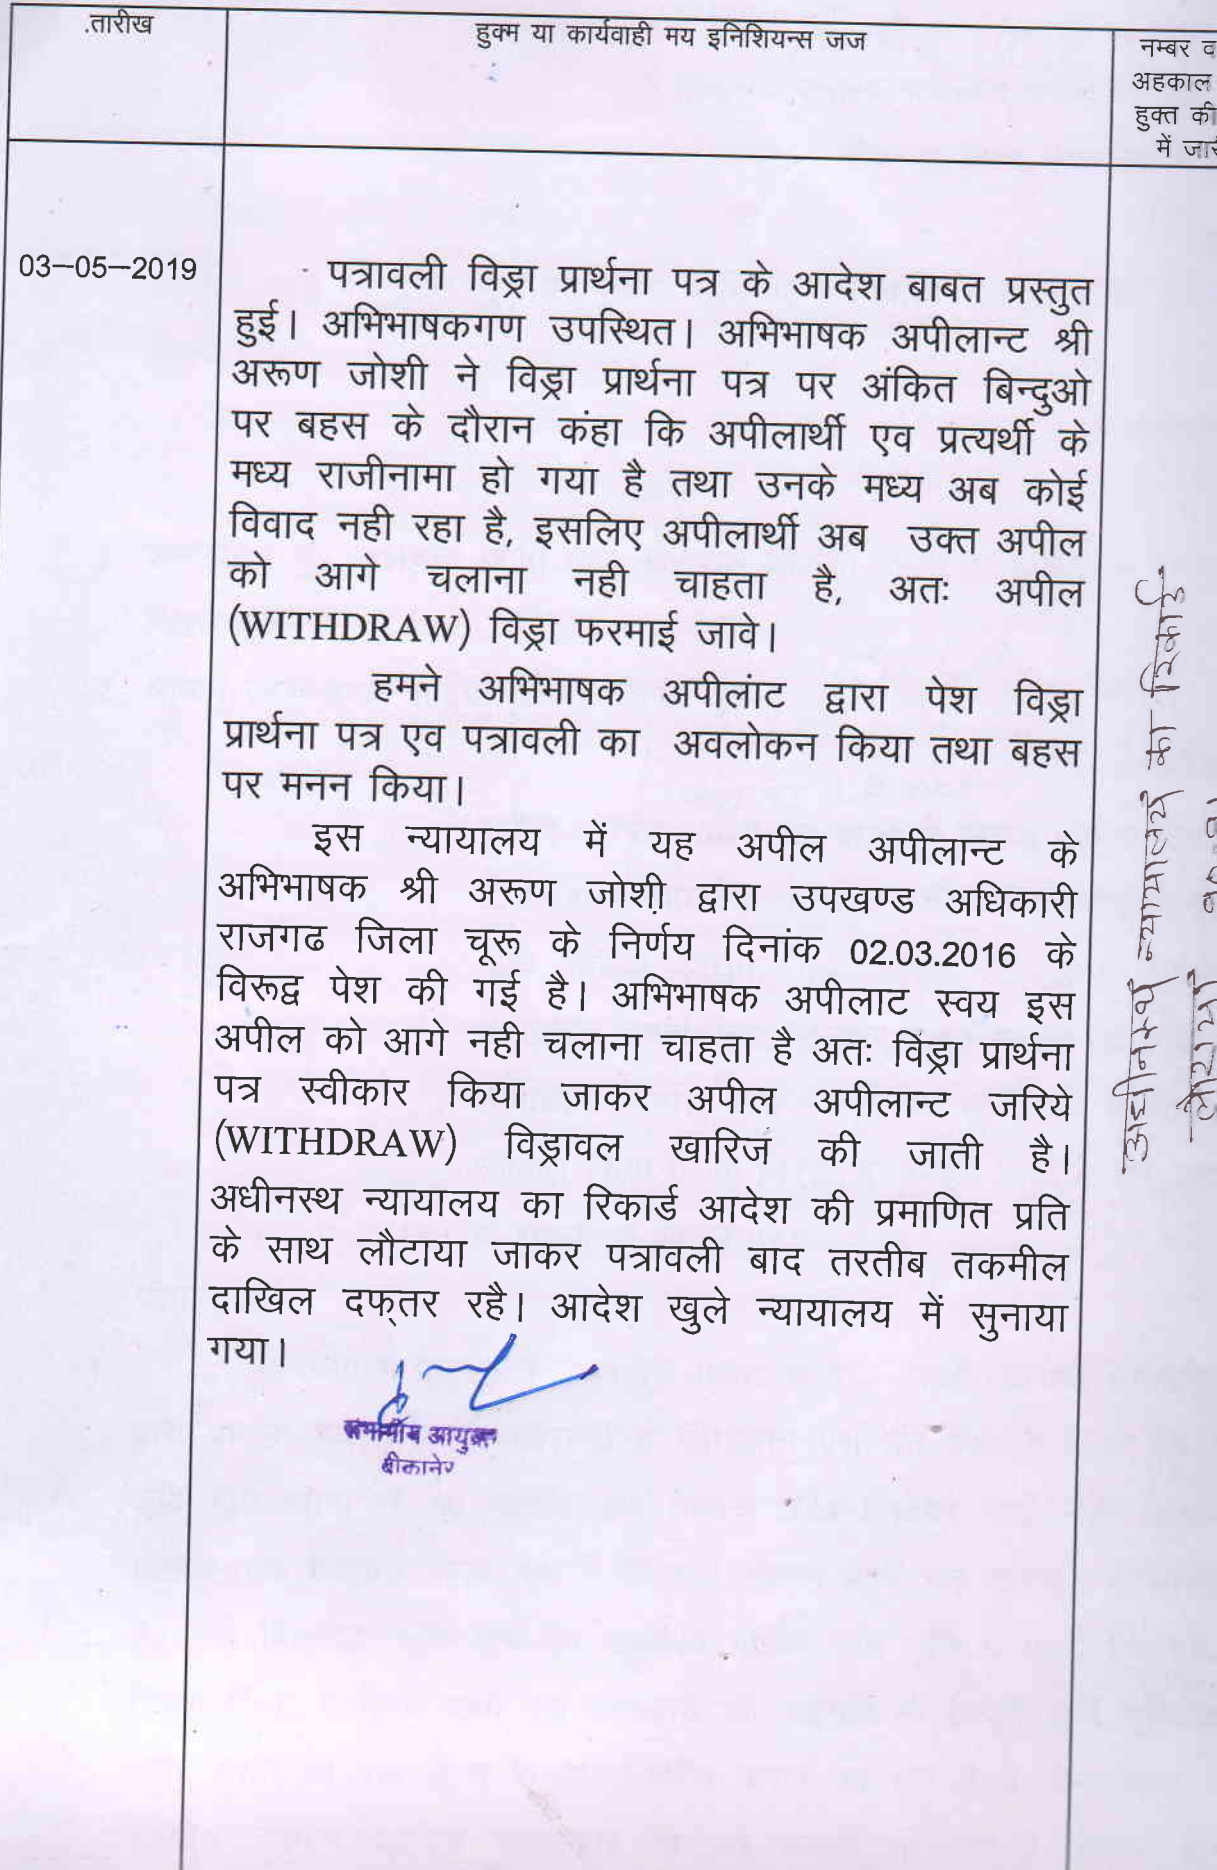 .तारीख
हुक्म या कार्यवाही मय इनिशियन्स जज
नम्बर व
अहकाल
हुक्त की
में जारी
03–05–2019
पत्रावली विड्रा प्रार्थना पत्र के आदेश बाबत प्रस्तुत
हुई। अभिभाषकगण उपस्थित। अभिभाषक अपीलान्ट श्री
अरूण जोशी ने विड्रा प्रार्थना पत्र पर अंकित बिन्दुओ
पर बहस के दौरान कंहा कि अपीलार्थी एव प्रत्यर्थी के
मध्य राजीनामा हो गया है तथा उनके मध्य अब कोई
विवाद नही रहा है, इसलिए अपीलार्थी अब उक्त अपील
को आगे चलाना नही चाहता है, अतः अपील
(WITHDRAW) विड्रा फरमाई जावे।
हमने अभिभाषक अपीलांट द्वारा पेश विड्रा
प्रार्थना पत्र एव पत्रावली का अवलोकन किया तथा बहस
पर मनन किया।
इस न्यायालय में यह अपील अपीलान्ट के
अभिभाषक श्री अरूण जोशी द्वारा उपखण्ड अधिकारी
राजगढ जिला चूरू के निर्णय दिनांक 02.03.2016 के
विरूद्व पेश की गई है। अभिभाषक अपीलाट स्वय इस
अपील को आगे नही चलाना चाहता है अतः विड्रा प्रार्थना
पत्र स्वीकार किया जाकर अपील अपीलान्ट जरिये
(WITHDRAW) विड्रावल खारिज की जाती है।
अधीनस्थ न्यायालय का रिकार्ड आदेश की प्रमाणित प्रति
के साथ लौटाया जाकर पत्रावली बाद तरतीब तकमील
दाखिल दफ्तर रहै। आदेश खुले न्यायालय में सुनाया
गया।
संभागीय आयुक्त
बीकानेर
अधीनस्थ न्यायालय का रिकार्ड